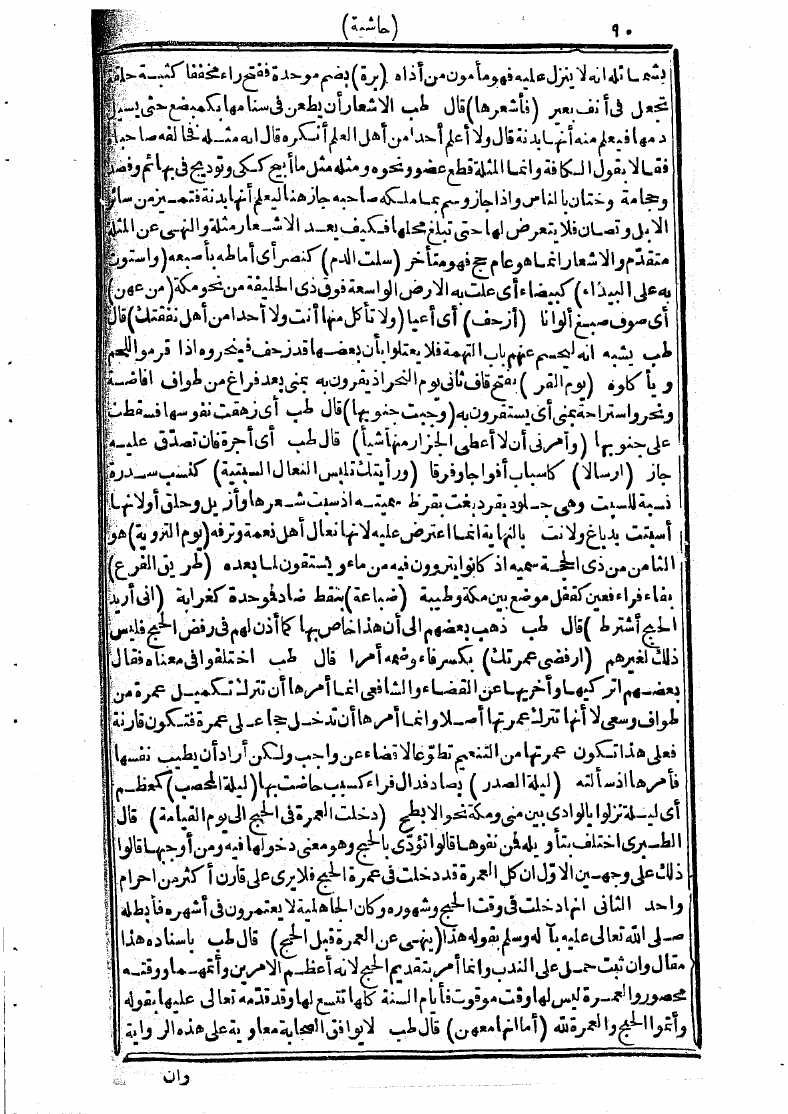 ٩٠
(حاشية)
يشعر بأنه لا ينزل عليه فهو مأمون من أذاه (برة) بضم موحدة ففتح راء مخففا كثبة حلقة
تجعل في أنف بعير (فأشعرها) قال طب الاشعار أن يطعن في سنامها بكمبضع حتى يسيل
دمها فيعلم منه أنها بدنة قال ولا أعلم أحدا من أهل العلم أنكره قال انه مثلة فخالفه صاحباه
فقالا بقول الكافة وانما المثلة قطع عضو ونحوه ومثله مثل ما أبيح ككي وتوديج في بهائم وفصد
وحجامة وختان بالناس واذا جاز وسم بما ملكه صاحبه جاز هنا ليعلم أنها بدنة فتميز من سائر
الابل وتصان فلا يتعرض لها حتى تبلغ محلها فكيف يعد الاشعار مثلة والنهى عن المثلة
متقدم والاشعار انما هو عام حج فهو متأخر (سلت الدم) كنصر أى أماطه بأصبعه (واستوت
به على البيداء) كبيضاء أى علت به الارض الواسعة فوق ذى الحليفة من نحو مكة (من عهن)
أى صوف صبغ ألوانا (أزحف) أى أعيا (ولا تأكل منها أنت ولا أحد من أهل رفقتك) قال
طب يشبه انه ليحسم عنهم باب التهمة فلا يعتلوا بأن بعضها قد زحف فينحروه اذا قرموا اللحم
ويأكلوه (يوم القر) بفتح قاف ثانى يوم النحر اذ يقرون به بمنى بعد فراغ من طواف افاضة
ونحر واستراحة بمنى أى يستقرون به (وجبت جنوبها) قال طب أى زهقت نفوسها فسقطت
على جنوبها (وأمرنى أن لا أعطى الجزار منها شيأ) قال طب أى أجرة فان تصدق عليه
جاز (ارسالا) كاسباب أفواجا وفرقا (ورأيتك تلبس النعال السبتية) كنسب سدرة
نسبة للسبت وهى جلود بقر دبغت بقرظ سميته اذ سبت شعرها وأزيل وحلق أو لانها
أسبتت بدباغ ولانت بالنهاية انما اعترض عليه لانها نعال أهل نعمة وترفه (يوم التروية) هو
الثامن من ذى الحجة سميه اذ كانوا يتروون فيه من ماء ويستقون لما بعده (طريق الفرع)
بفاء فراء فعين كقفل موضع بين مكة وطيبة (ضباعة) بنقط ضاد فوحدة كغرابة (انى أريد
الحج أشترط) قال طب ذهب بعضهم الى أن هذا خاص بها كما أذن لهم فى رفض الحج فليس
ذلك لغيرهم (ارفضى عمرتك) بكسر فاء وضمه أمرا قال طب اختلفوا فى معناه فقال
بعضهم اتركيها وأخريها عن القضاء والشافعى انما أمرها أن تترك تكميل عمرة من
طواف وسعى لا أنها تترك عمرتها أصلا وانما أمرها أن تدخل حجا على عمرة فتكون قارنة
فعلى هذا تكون عمرتها من التنعيم تطوعا لا قضاء عن واجب ولكن أراد أن يطيب نفسها
فأمرها اذ سألته (ليلة الصدر) بصاد فدال فراء كسبب حاضت بها (ليلة المحصب) كمعظم
أى ليلة نزلوا بالوادى بين منى ومكة نحو الابطح (دخلت العمرة فى الحج الى يوم القيامة) قال
الطبرى اختلف بتأويله فمن نفوها قالوا تؤدى بالحج وهو معنى دخولها فيه ومن أوجبها قالوا
ذلك على وجهين الاول ان كل العمرة قد دخلت فى عمرة الحج فلا يرى على قارن أكثر من احرام
واحد الثانى انها دخلت فى وقت الحج وشهوره وكان الجاهلية لا يعتمرون فى أشهره فأبطله
صلى الله تعالى عليه بآله وسلم بقوله هذا (ينهى عن العمرة قبل الحج) قال طب باسناده هذا
مقال وان ثبت حمل على الندب وانما أمر بتقديم الحج لانه أعظم الامرين وأتمهما ووقته
محصور والعمرة ليس لها وقت موقوت فأيام السنة كلها تتسع لها وقد قدمه تعالى عليها بقوله
وأتموا الحج والعمرة لله (أما انها معهن) قال طب لا يوافق الصحابة معاوية على هذه الرواية
وان